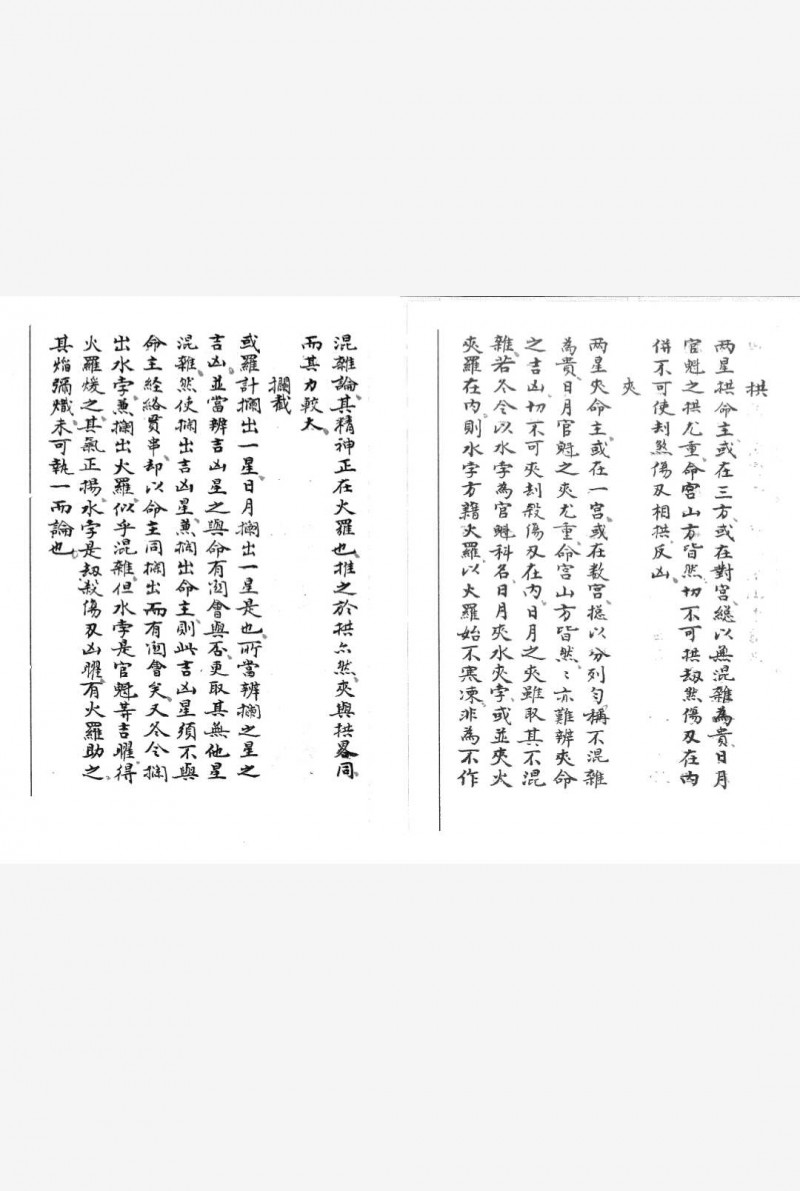 拱
两星拱命主或在三方或在對宮總以無混雜為貴日月
官魁之拱尤重命宮山方皆然切不可拱刼煞傷刄在內
併不可使刦煞傷刄相拱反凶
夾
两星夾命主或在一宮或在數宮揔以分列勻稱不混雜
為貴日月官魁之夾尤重命宮山方皆然〻亦難辨夾命
之吉凶切不可夾刦殺傷刄在內日月之夾雖取其不混
雜若冬令以水孛為官魁科名日月夾水夾孛或並夾火
夾羅在內則水孛方藉火羅以火羅始不寒凍非為不作
混雜論其精神正在火羅也推之於拱亦然夾與拱畧同
而其力較大
攔截
或羅計攔出一星日月攔出一星是也所當辨攔之星之
吉凶並當辨吉凶星之與命有関會與否更取其無他星
混雜然使攔出吉凶星兼攔出命主則此吉凶星須不與
命主經絡貫串却以命主同攔出而有関會矣又冬令攔
出水孛兼攔出火羅似乎混雜但水孛是官魁等吉曜得
火羅煖之其氣正揚水孛是刼殺傷刄凶曜有火羅助之
其焰彌熾未可執一而論也